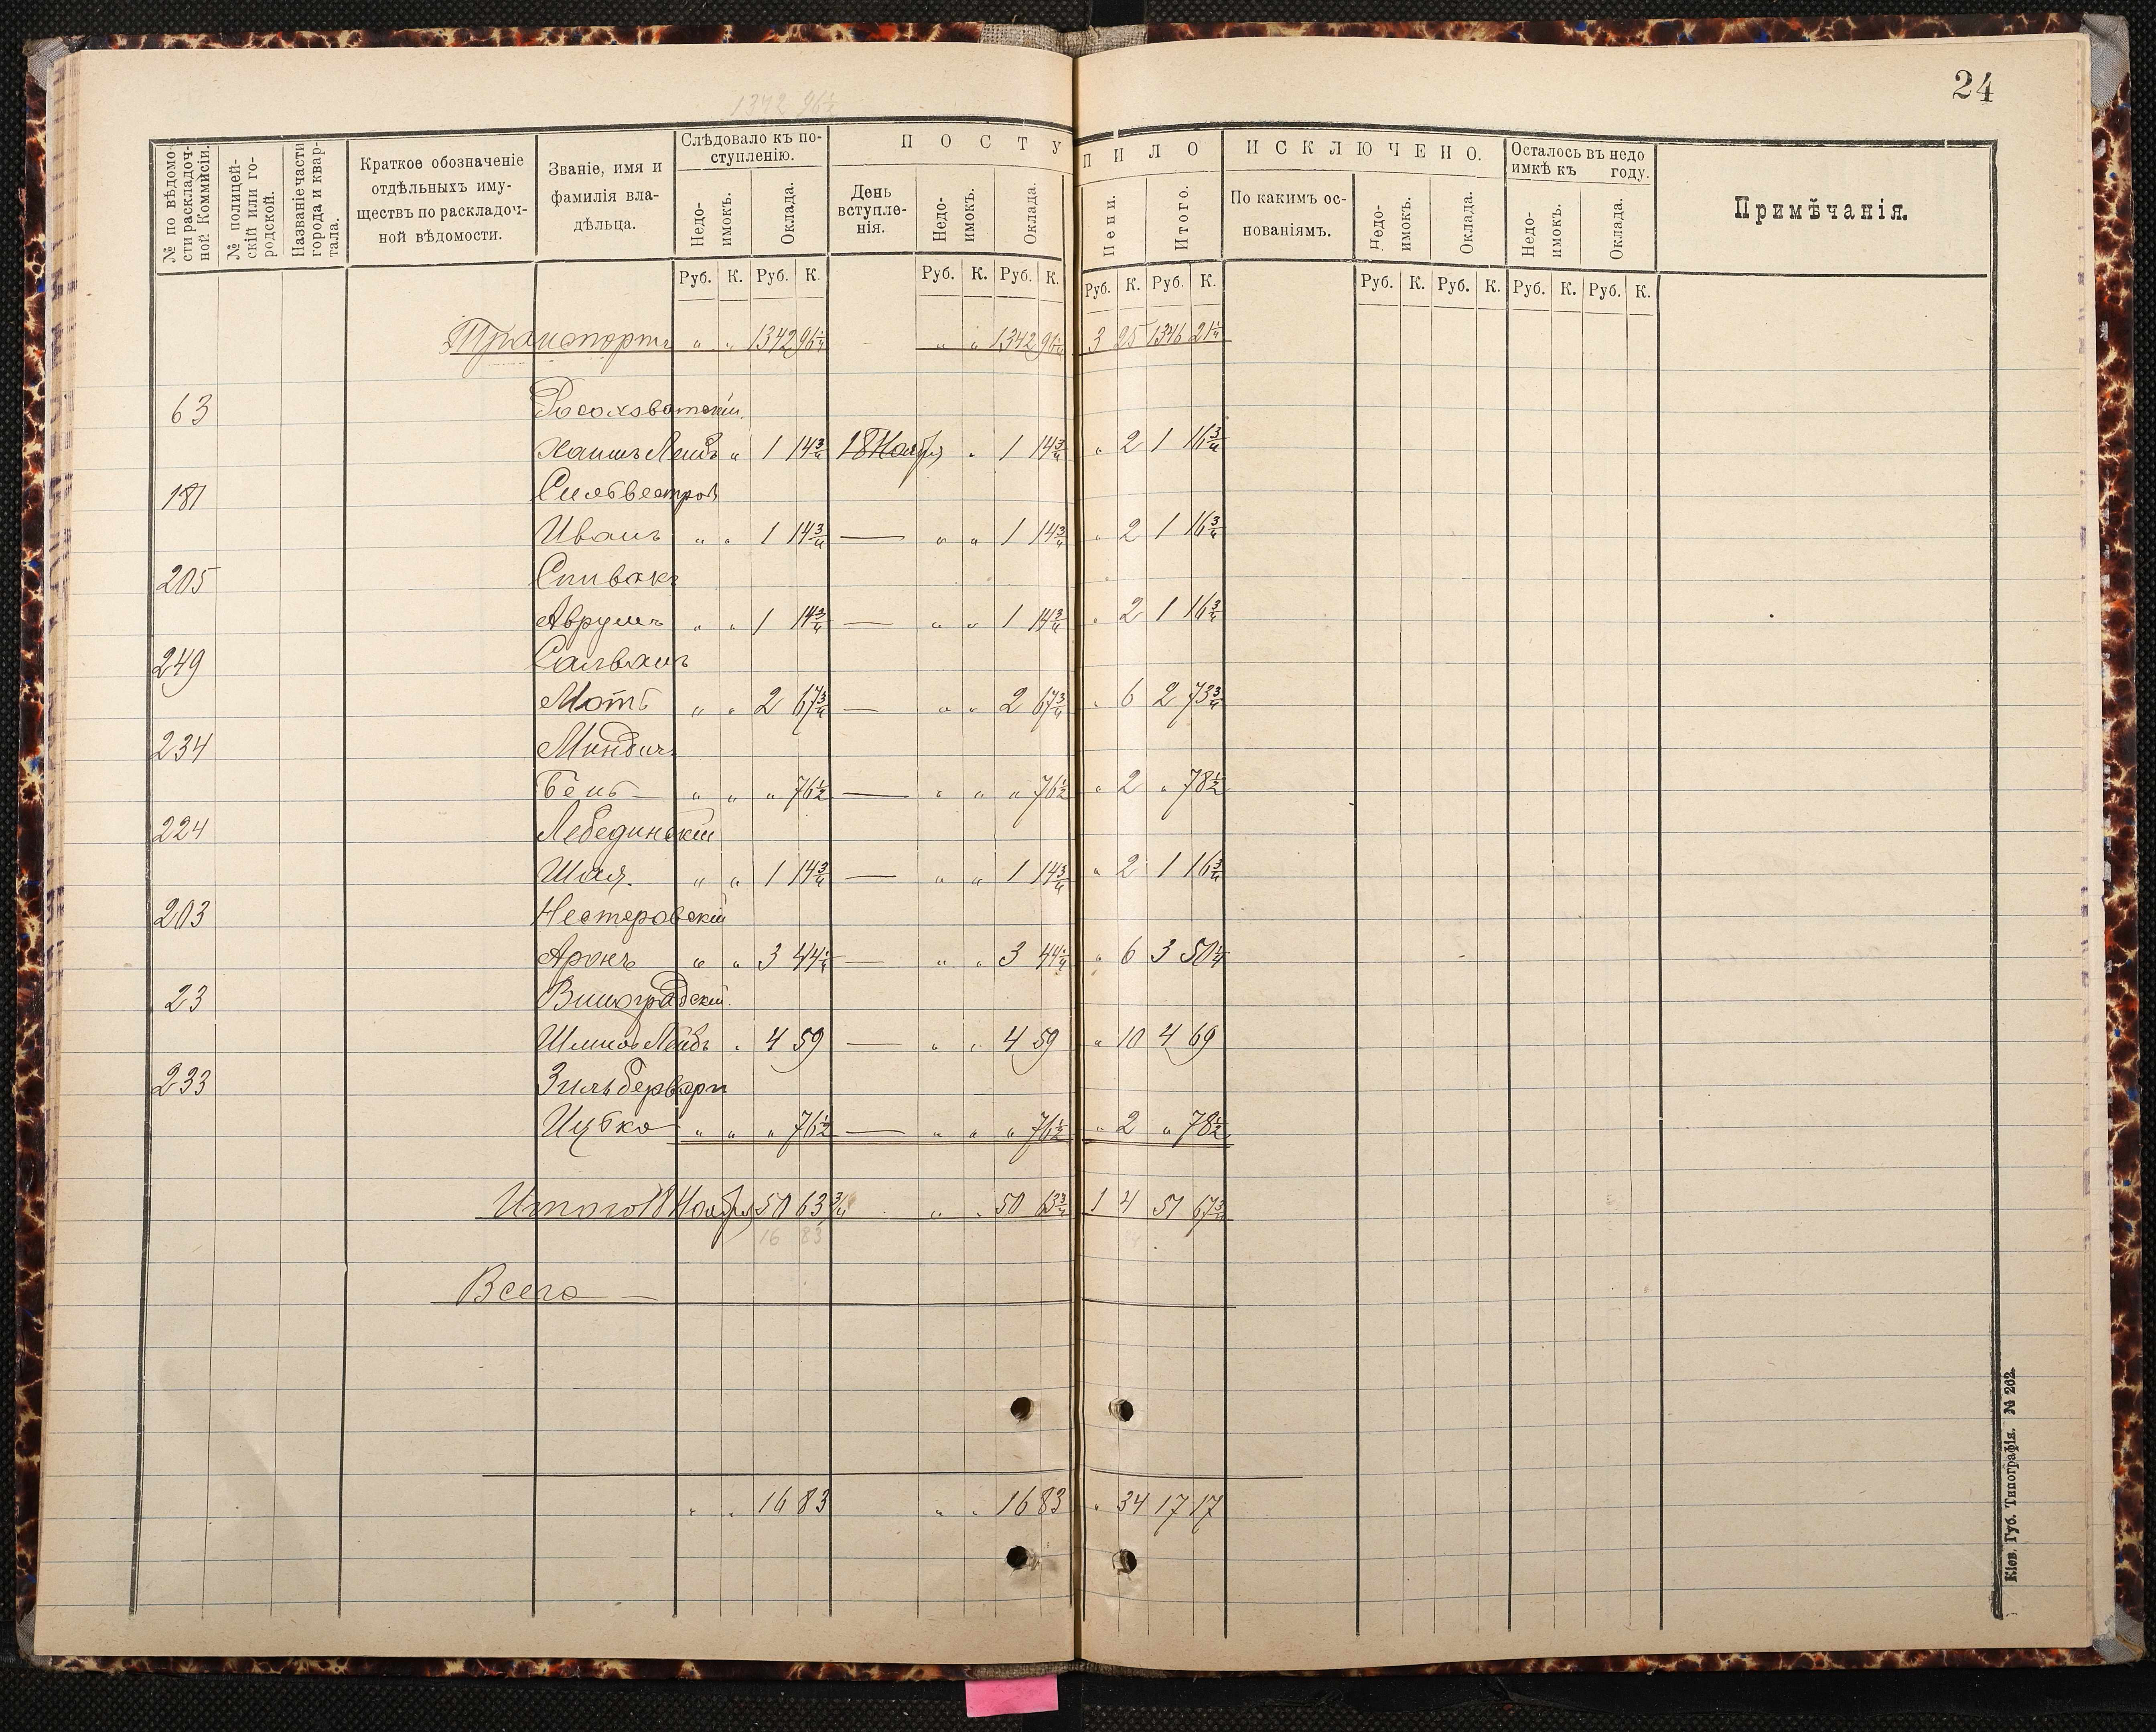 24
1342 96½
№ по вѣдомости раскладочной Коммисіи.
№ полицейскій или городской.
Названіе части города и квартала.
Краткое обозначеніе отдѣльныхъ имуществъ по раскладочной вѣдомости.
Званіе, имя и фамилія владѣльца.
Слѣдовало къ поступленію.
Недоимокъ.
Оклада.
ПОСТУПИЛО
День вступленія.
Недоимокъ.
Оклада.
Пени.
Итого.
ИСКЛЮЧЕНО.
По какимъ основаніямъ.
Недоимокъ.
Оклада.
Осталось въ недоимкѣ къ году.
Недоимокъ.
Оклада.
Примѣчанія.
Руб. К. Руб. К. Руб. К. Руб. К. Руб. К. Руб. К. Руб. К. Руб. К. Руб. К. Руб. К.
Транспортъ " " 1342 96¼ " " 1342 96¼ 3 25 1346 21¼
63 Росоховатскій
Хаимъ Лейбъ " 1 14¾ 18 Ноября " 1 14¾ " 2 1 16¾
181 Сильвестров
Иванъ " " 1 14¾ — " " 1 14¾ " 2 1 16¾
205 Спивакъ
Аврумъ " " 1 14¾ — " " 1 14¾ " 2 1 16¾
249 Салванъ
Моть " " 2 67¾ — " " 2 67¾ " 6 2 73¾
234 Миндичъ
Бень " " " 76½ — " " " 76½ " 2 " 78½
224 Лебединскій
Шая. " " 1 14¾ — " " 1 14¾ " 2 1 16¾
203 Нестеровскій
Аронъ " " 3 44¼ — " " 3 44¼ " 6 3 50¼
23 Виноградскій.
Лейбъ " 4 59 — " " 4 59 " 10 4 69
233 Зильберварг
Ицько " " " 76½ — " " " 76½ " 2 " 78½
Итого 18 Ноября 50 63¾ " " 50 63¾ 1 4 51 67¾
16 83
Всего —
" " 16 83 " " 16 83 " 34 17 17
Кіев. Губ. Типографія. № 262.